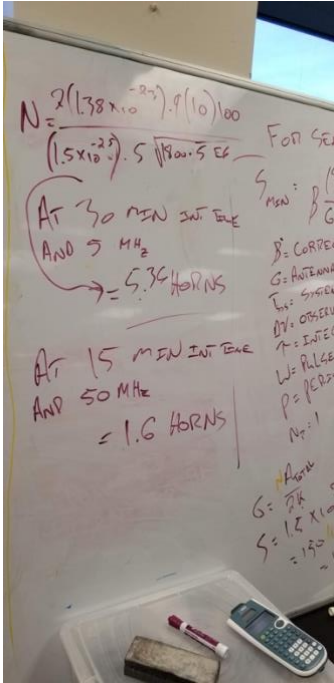 N = 2(1.38x10^-23).9(10)100
(1.5x10^-25).5 √1800.5 E6
AT 30 MIN INT TIME
AND 5 MHz
= 5.34 HORNS
AT 15 MIN INT TIME
AND 50 MHz
= 1.6 HORNS
FOR
S MIN = β
G
β = CORREC
G = ANTENNA
= SYSTEM
= OBSERV
τ = INTEG
W = PULSE
P = PERI
= 1
G = 
2K
S = 1.5 x 10
= 150